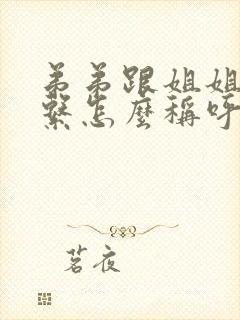 弟弟跟姐姐
繫怎麼稱呼
茗夜